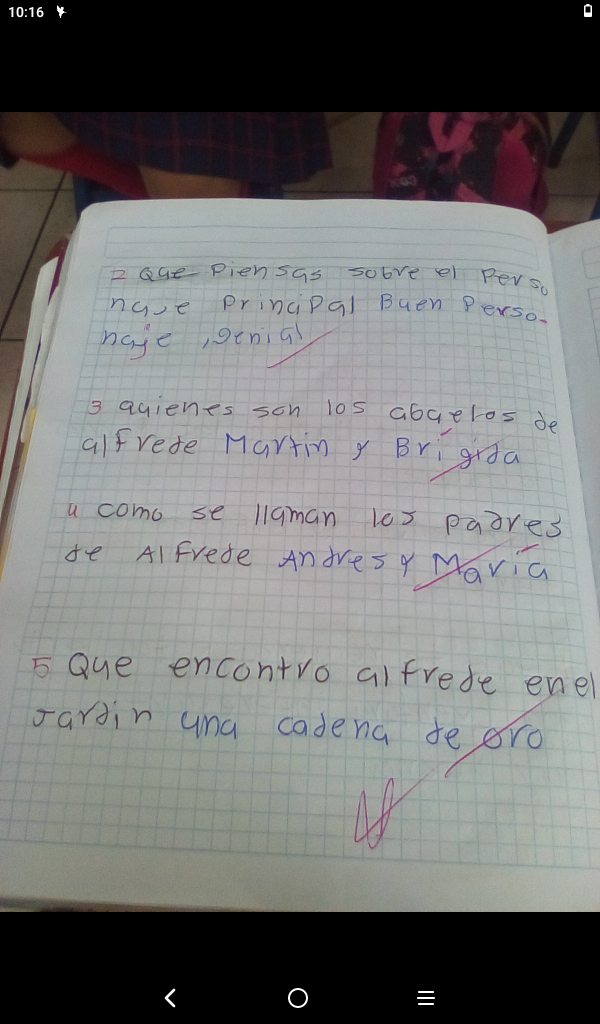 10:16
2 Que Piensas sobre el Perso
naje Principal Buen Perso-
naje , genial
3 quienes son los abuelos de
alfrede Martin y Brígida
4 como se llaman los padres
de Alfrede Andres y María
5 Que encontro alfrede en el
Jardin una cadena de oro